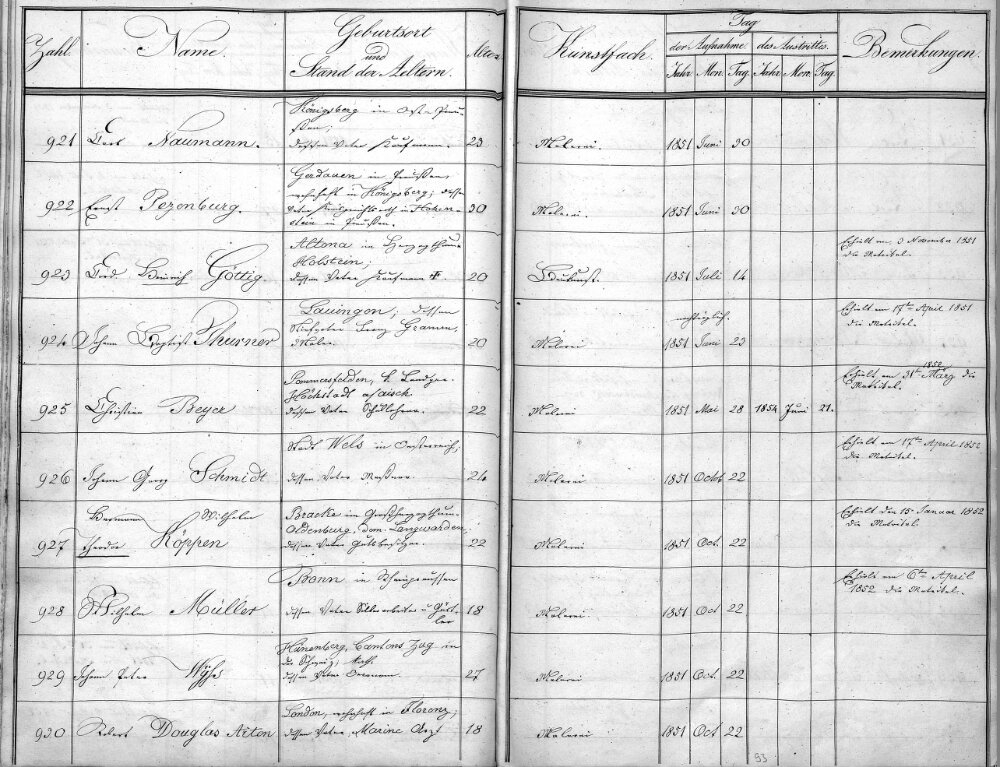 Zahl Name Geburtsort und Stand der Aeltern. Alter Kunstfach. Tag Bemerkungen.
der Aufnahme des Austrittes.
Jahr Mon. Tag Jahr Mon. Tag.
Königsberg in Ost-Preu-
ßen;
921 Carl Naumann. dessen Vater Kaufmann. 23 Malerei. 1851 Juni 30
Gerdauen in Preußen,
wohnhaft in Königsberg; dessen
922 Ernst Pezenburg. Vater in Hohen- 30 Malerei. 1851 Juni 30
stein in Preußen.
Altona in Herzogthum Erhielt am 3 November 1851
Holstein; die Matrikel.
923 Heinrich Göttig. dessen Vater Kaufmann † 20 Baukunst. 1851 Juli 14
Lauingen; dessen Erhielt am 17ten April 1851
Stiefvater nachträglich. die Matrikel.
924 Johann Baptist Thurner Maler. 20 Malerei 1851 Juni 23
1852
Pommersfelden, k. Landger. Erhielt am 31t März die
Höchstadt a/aisch Matrikel.
925 Christian Beyer dessen Vater 22 Malerei 1851 Mai 28 1854 Juni 21.
Stadt Wels in Oesterreich; Erhielt am 17ten April 1852
die Matrikel.
926 Johann Georg Schmidt dessen Vater 24 Malerei 1851 Octob 22
Hermann Wilhelm Bracke im Großherzogthum Erhielt den 15 Januar 1852
Oldenburg, dom. Langwarden, die Matrikel.
927 Theodor Köppen dessen Vater Gutsbesitzer. 22 Malerei 1851 Oct. 22
Bonn in Rheinpreussen Erhielt am 6ten April
1852 die Matrikel.
928 Wilhelm Müller dessen Vater Silberarbeiter u Gürt- 18 Malerei 1851 Oct 22
ler
Hünenberg, Cantons Zug in
der Schweiz; kath.
929 Johann Peter Wyß dessen Vater 27 Malerei 1851 Oct. 22
London, wohnhaft in Florenz;
930 Robert Douglas Arton dessen Vater Marine Arzt 18 Malerei 1851 Oct 22
93